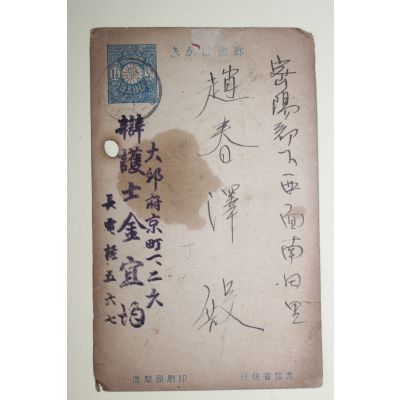 郵便はがき
密陽郡下西面南田里
趙春澤殿
大邱府京町一、二六
辯護士金宜均
長電話五六七
印刷局製造
逓信省發行